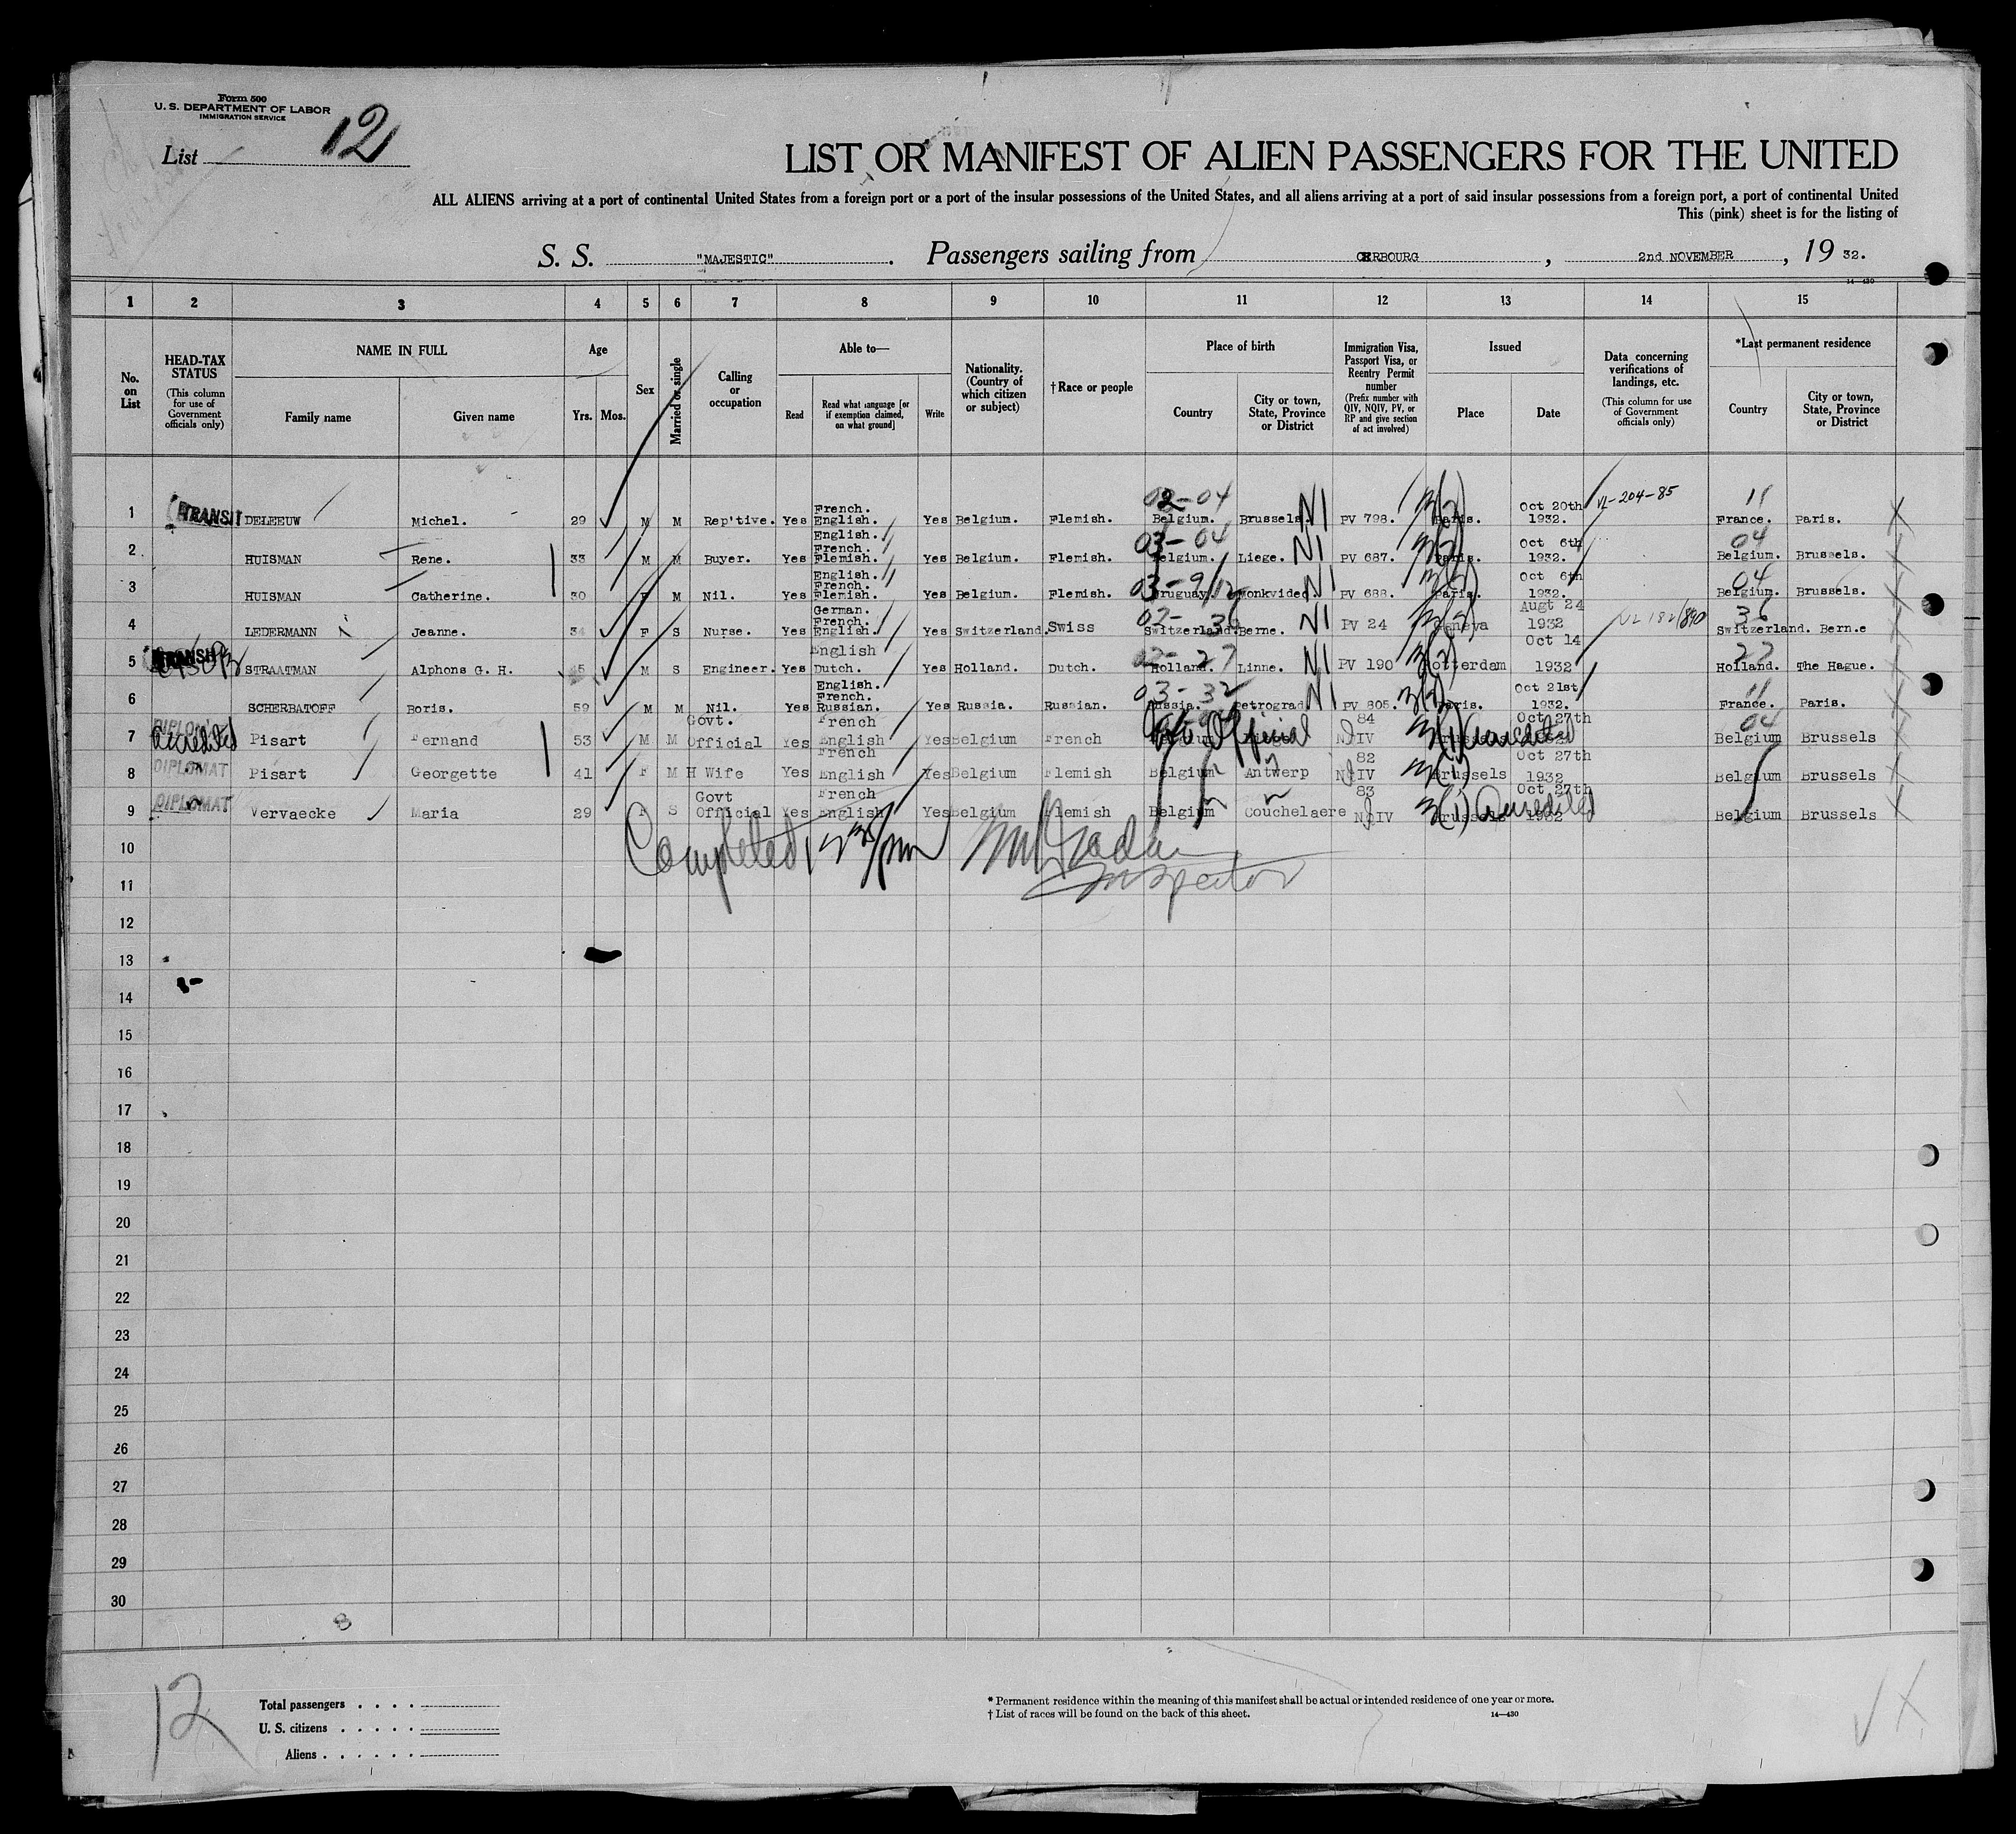 Form 500
U. S. DEPARTMENT OF LABOR
IMMIGRATION SERVICE
List 12
LIST OR MANIFEST OF ALIEN PASSENGERS FOR THE UNITED
ALL ALIENS arriving at a port of continental United States from a foreign port or a port of the insular possessions of the United States, and all aliens arriving at a port of said insular possessions from a foreign port, a port of continental United
This (pink) sheet is for the listing of
S. S. "MAJESTIC" . Passengers sailing from CERBOURG , 2nd NOVEMBER , 19 32.
14—430
1 2 3 4 5 6 7 8 9 10 11 12 13 14 15
No. on List
HEAD-TAX STATUS
(This column for use of Government officials only)
NAME IN FULL
Family name Given name
Age
Yrs. Mos.
Sex
Married or single
Calling or occupation
Able to—
Read
Read what language [or if exemption claimed, on what ground]
Write
Nationality. (Country of which citizen or subject)
†Race or people
Place of birth
Country
City or town, State, Province or District
Immigration Visa, Passport Visa, or Reentry Permit number
(Prefix number with QIV, NQIV, PV, or RP and give section of act involved)
Issued
Place Date
Data concerning verifications of landings, etc.
(This column for use of Government officials only)
*Last permanent residence
Country
City or town, State, Province or District
02-04 VL-204-85 11
1 TRANSIT DELEEUW Michel. 29 M M Rep'tive. Yes French. English. Yes Belgium. Flemish. Belgium. Brussels. N1 PV 798. 3(2) Paris. Oct 20th 1932. France. Paris.
03-04 04
2 HUISMAN Rene. 33 M M Buyer. Yes English. French. Flemish. Yes Belgium. Flemish. Belgium. Liege. N1 PV 687. 3(2) Paris. Oct 6th 1932. Belgium. Brussels.
03-9/12 04
3 HUISMAN Catherine. 30 F M Nil. Yes English. French. Flemish. Yes Belgium. Flemish. Uruguay. Monkvideo. N1 PV 688. 3(2) Paris. Oct 6th 1932. Belgium. Brussels.
02-36 36
4 LEDERMANN Jeanne. 34 F S Nurse. Yes German. French. English. Yes Switzerland. Swiss Switzerland. Berne. N1 PV 24 3(2) Geneva Augt 24 1932 VL 182/890 Switzerland. Bern.e
02-27 27
5 TRANSIT STRAATMAN Alphons G. H. 45 M S Engineer. Yes English Dutch. Yes Holland. Dutch. Holland. Linne. N1 PV 190 3(2) Rotterdam Oct 14 1932 Holland. The Hague.
03-32 11
6 SCHERBATOFF Boris. 59 M M Nil. Yes English. French. Russian. Yes Russia. Russian. Russia. Petrograd N1 PV 805. 3(2) Paris. Oct 21st 1932. France. Paris.
04
7 DIPLOMAT Accredited Pisart Fernand 53 M M Govt. Official Yes French English Yes Belgium French Belgium Official 84 NQIV 3(1) Accredited Brussels Oct 27th 1932 Belgium Brussels
8 DIPLOMAT Pisart Georgette 41 F M H Wife Yes French English Yes Belgium Flemish Belgium Antwerp 82 NQIV 3(1) Brussels Oct 27th 1932 Belgium Brussels
9 DIPLOMAT Vervaecke Maria 29 F S Govt Official Yes French English Yes Belgium Flemish Belgium Couchelaere 83 NQIV 3(1) Accredited Brussels Oct 27th 1932 Belgium Brussels
10 Completed
11 Inspector
12
13
14
15
16
17
18
19
20
21
22
23
24
25
26
27
28
29
30
8
12
Total passengers . . . .
U. S. citizens . . . . .
Aliens . . . . . .
* Permanent residence within the meaning of this manifest shall be actual or intended residence of one year or more.
† List of races will be found on the back of this sheet.
14—430